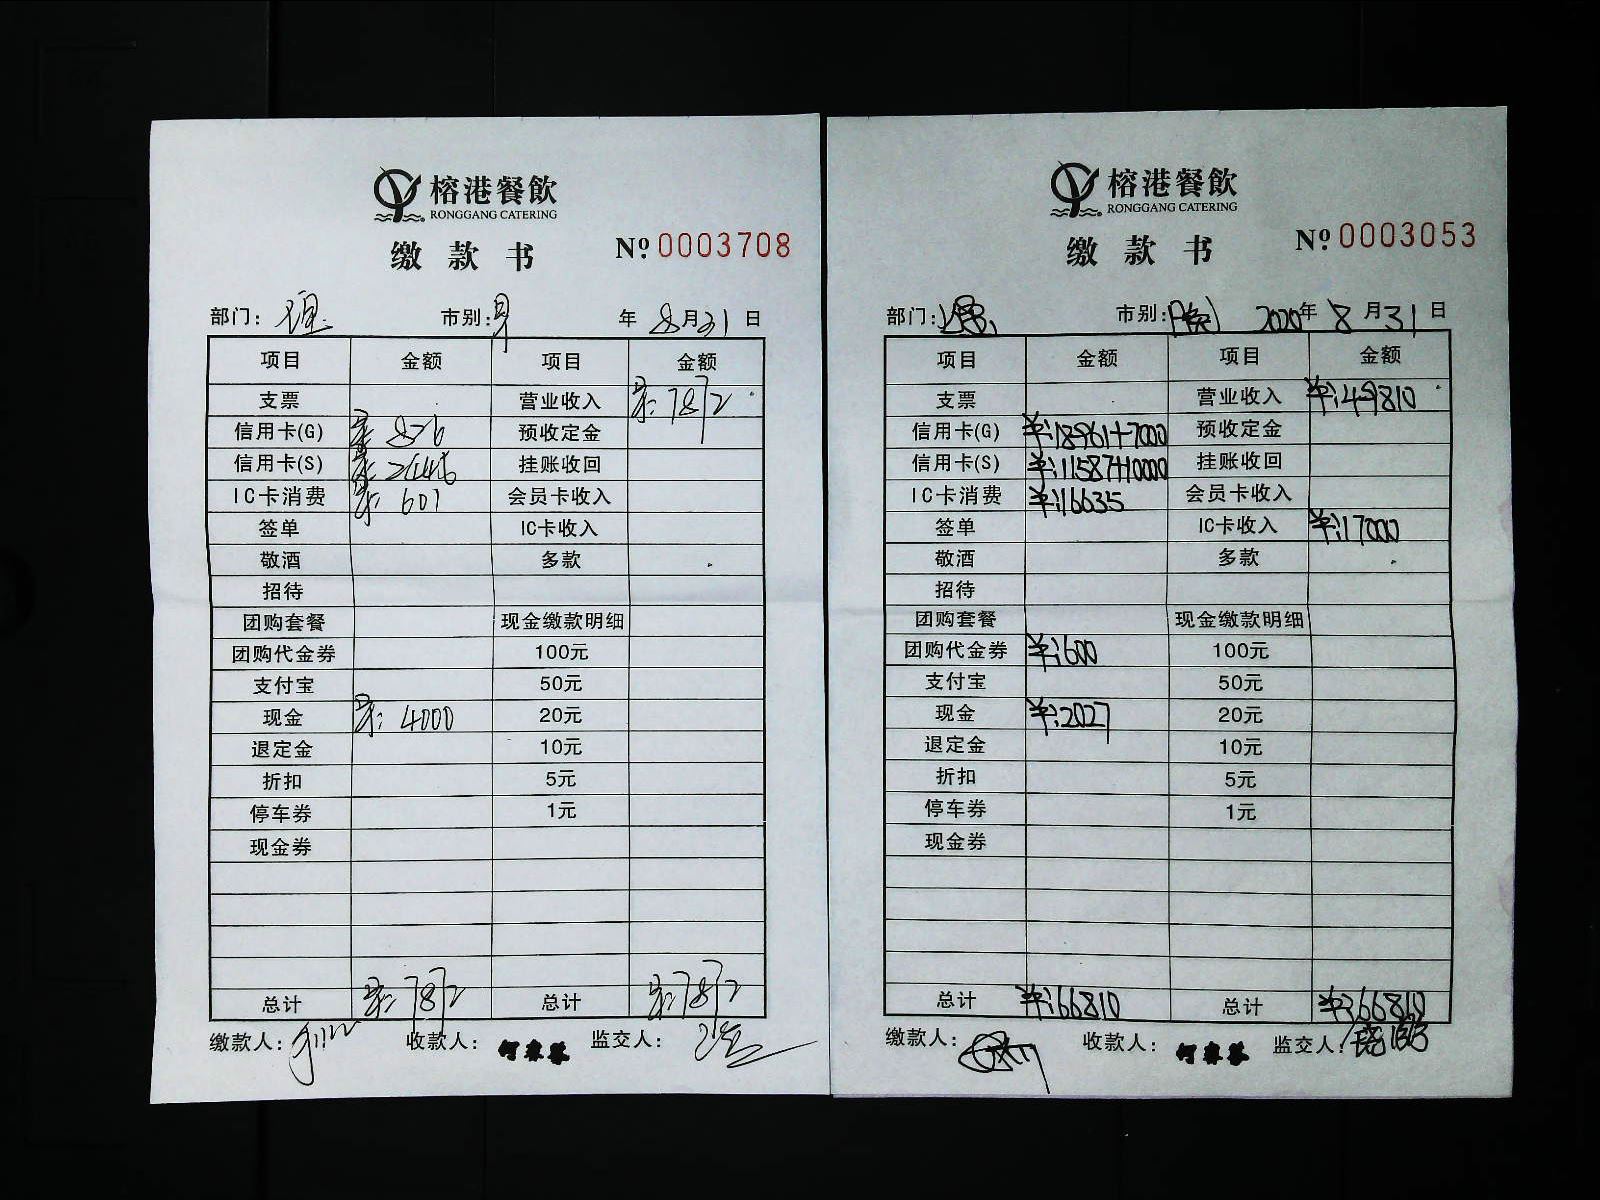 榕港餐飲
RONGGANG CATERING
缴款书
Nº 0003708
部门： 市别： 年8月31日
项目 金额 项目 金额
支票 营业收入 7872
信用卡(G) 876 预收定金
信用卡(S) 挂账收回
IC卡消费 会员卡收入
签单 IC卡收入
敬酒 多款
招待
团购套餐 现金缴款明细
团购代金券 100元
支付宝 50元
现金 4000 20元
退定金 10元
折扣 5元
停车券 1元
现金券
总计 总计
缴款人： 收款人： 监交人：
榕港餐飲
RONGGANG CATERING
缴款书
Nº 0003053
部门： 市别： 2020年8月31日
项目 金额 项目 金额
支票 营业收入 ¥:49810
信用卡(G) ¥:18961+7000 预收定金
信用卡(S) ¥:11587+10000 挂账收回
IC卡消费 ¥:16635 会员卡收入
签单 IC卡收入 ¥:17000
敬酒 多款
招待
团购套餐 现金缴款明细
团购代金券 ¥:600 100元
支付宝 50元
现金 ¥:2027 20元
退定金 10元
折扣 5元
停车券 1元
现金券
总计 ¥:66810 总计 ¥:66810
缴款人： 收款人： 监交人：